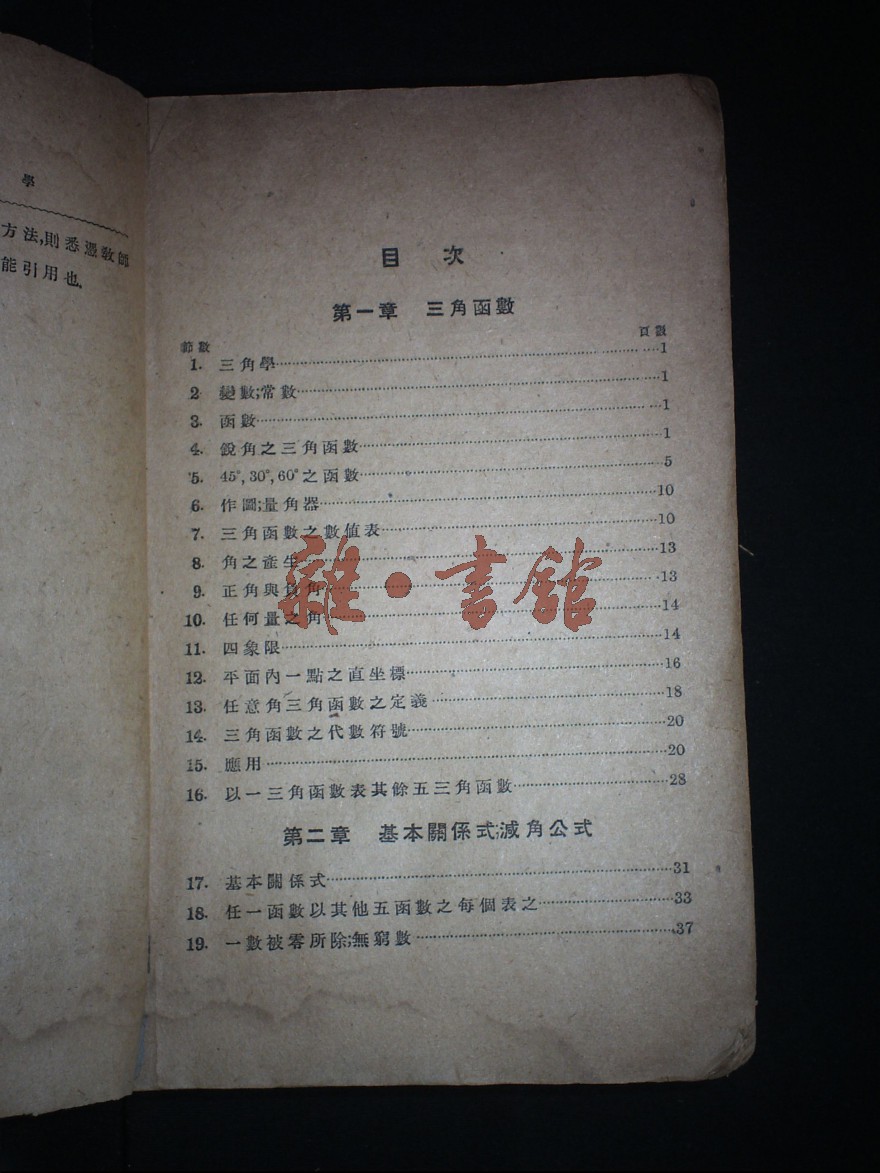 學
方法,則悉憑敎師
能引用也.
目 次
第一章 三角函數
節數 頁數
1. 三角學 1
2 變數;常數 1
3. 函數 1
4. 銳角之三角函數 1
5. 45°,30°,60°之函數 5
6. 作圖;量角器 10
7. 三角函數之數值表 10
8. 角之產生 13
9. 正角與負角 13
10. 任何量之角 14
11. 四象限 14
12. 平面內一點之直坐標 16
13. 任意角三角函數之定義 18
14. 三角函數之代數符號 20
15. 應用 20
16. 以一三角函數表其餘五三角函數 28
第二章 基本關係式;減角公式
17. 基本關係式 31
18. 任一函數以其他五函數之每個表之 33
19. 一數被零所除;無窮數 37
雜·書館